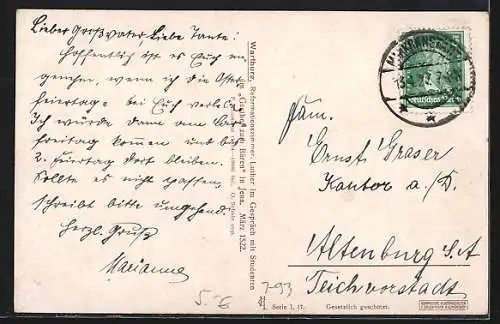 Lieber Großvater Liebe Tante!
Hoffentlich ist es Euch an-
genehm, wenn ich die Oster-
feiertage bei Euch verlebe.
Ich würde dann am Kar-
freitag kommen und bis
2. Feiertag dort bleiben.
Sollte es nicht passen,
schreibt bitte umgehend.
Herzl. Gruß
Marianne
Wartburg, Reformationszimmer. Luther im Gespräch mit Studenten
im „Gasthof zum Bären" in Jena. März 1522.
Deutsches Reich
Fam.
Ernst Graser
Kantor a./D.
Altenburg S.A
Teichvorstadt
Serie I, 17.
Gesetzlich geschützt.